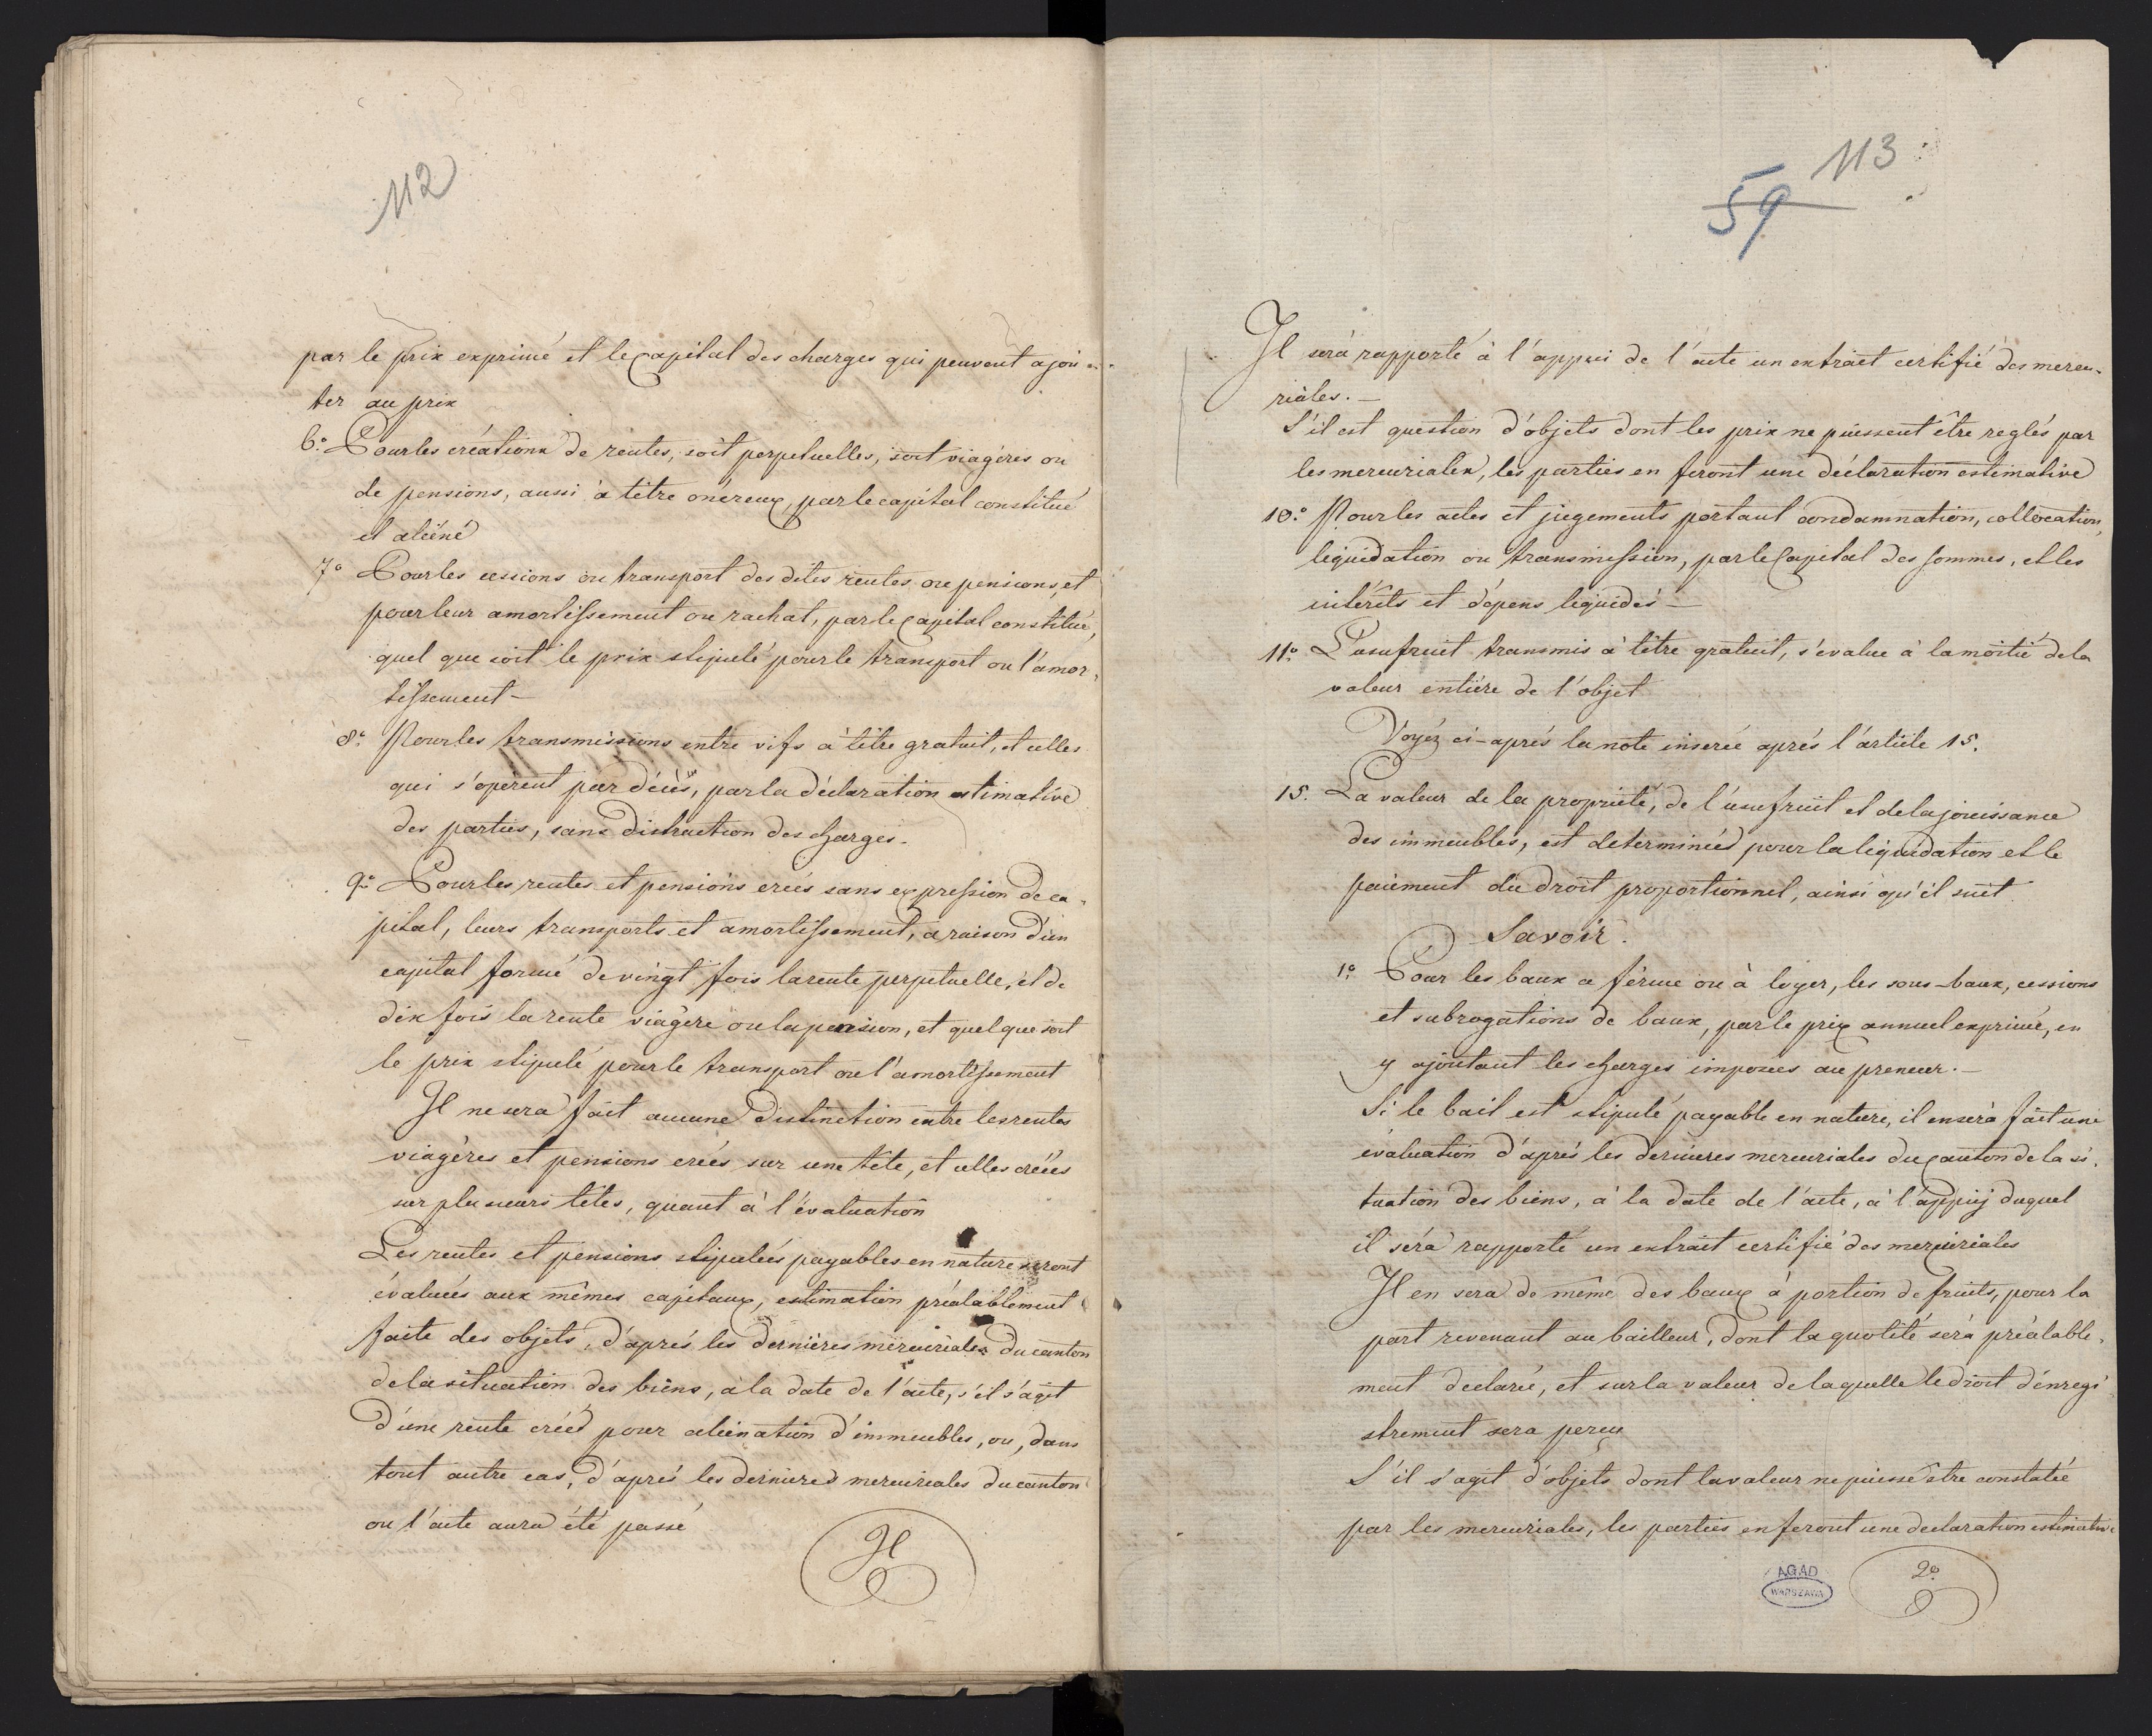 112
par le prix exprimé et le Capital des charges qui peuvent ajou-
ter au prix
6.° Pour les créations de rentes, soit perpetuelles, soit viagères ou
de pensions, aussi à titre onéreux, par le capital constitué
et aliéné
7° Pour les cessions ou transport des dites rentes ou pensions, et
pour leur amortissement ou rachat, par le Capital constitué,
quel que soit le prix stipulé pour le transport ou l'amor-
tissement –
8.° Pour les transmissions entre vifs à titre gratuit, et celles
qui s'opèrent par décès, par la déclaration estimative
des parties, sans distraction des charges.
9.° Pour les rentes et pensions creés sans expression de ca-
pital, leurs transports et amortissement, a raison d'un
capital formé de vingt fois la rente perpetuelle, et de
dix fois la rente viagère ou la pension, et quel que soit
le prix stipulé pour le transport ou l'amortissement
Il ne sera fait aucune distinction entre les rentes
viagères et pensions creés sur une tête, et celles créés
sur plusieurs têtes, quant à l'évaluation
Les rentes et pensions stipuleés payables en nature seront
évaluées aux mêmes capitaux, estimation préalablement
faite des objets, d'après les dernières mercuriales du canton
de la situation des biens, a la date de l'acte, s'il s'agit
d'une rente créeé pour alienation d'immeubles, ou, dans
tout autre cas, d'aprés les dernieres mercuriales du canton
ou l'acte aura été passé
Il
113
59
Il sera rapporté à l'appui de l'acte un extrait certifié des mercu-
riales. –
S'il est question d'objets dont les prix ne puissent être reglés par
les mercuriales, les parties en feront une déclaration estimative
10.° Pour les actes et jugements portant condamnation, collocation,
liquidation ou transmission, par le Capital des sommes, et les
intérêts et dépens liquidés –
11.° L'usufruit transmis à titre gratuit, s'évalue à la moitié de la
valeur entière de l'objet
Voyéz ci-aprés la note inserée aprés l'article 15.
15. La valeur de la propriété, de l'usufruit et de la jouissance
des immeubles, est determineé pour la liquidation et le
paiement du droit proportionnel, ainsi qu'il suit
Savoir.
1.° Pour les baux a férme ou à loyer, les sous-baux, cessions
et subrogations de baux, par le prix annuel exprimé, en
y ajoutant les charges imposées au preneur. –
Si le bail est stipulé payable en nature, il en sera fait une
évaluation d'aprés les dernieres mercuriales du Canton de la si-
tuation des biens, à la date de l'acte, à l'appuj duquel
il sera rapporté un extrait certifié des mercuriales
Il en sera de même des baux à portion de fruits, pour la
part revenant au bailleur, dont la quotité sera préalable-
ment declarée, et sur la valeur de laquelle le droit d'enregi
strement sera perçu
S'il s'agit d'objets dont la valeur ne puisse être constatée
par les mercuriales, les parties en feront une declaration estimative
AGAD
WARSZAWA
2°